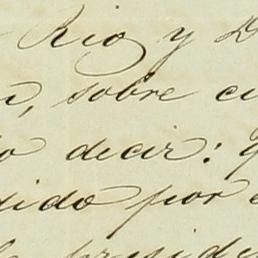 Rio y D
n, sobre cu
o decir:
dido por
presiden